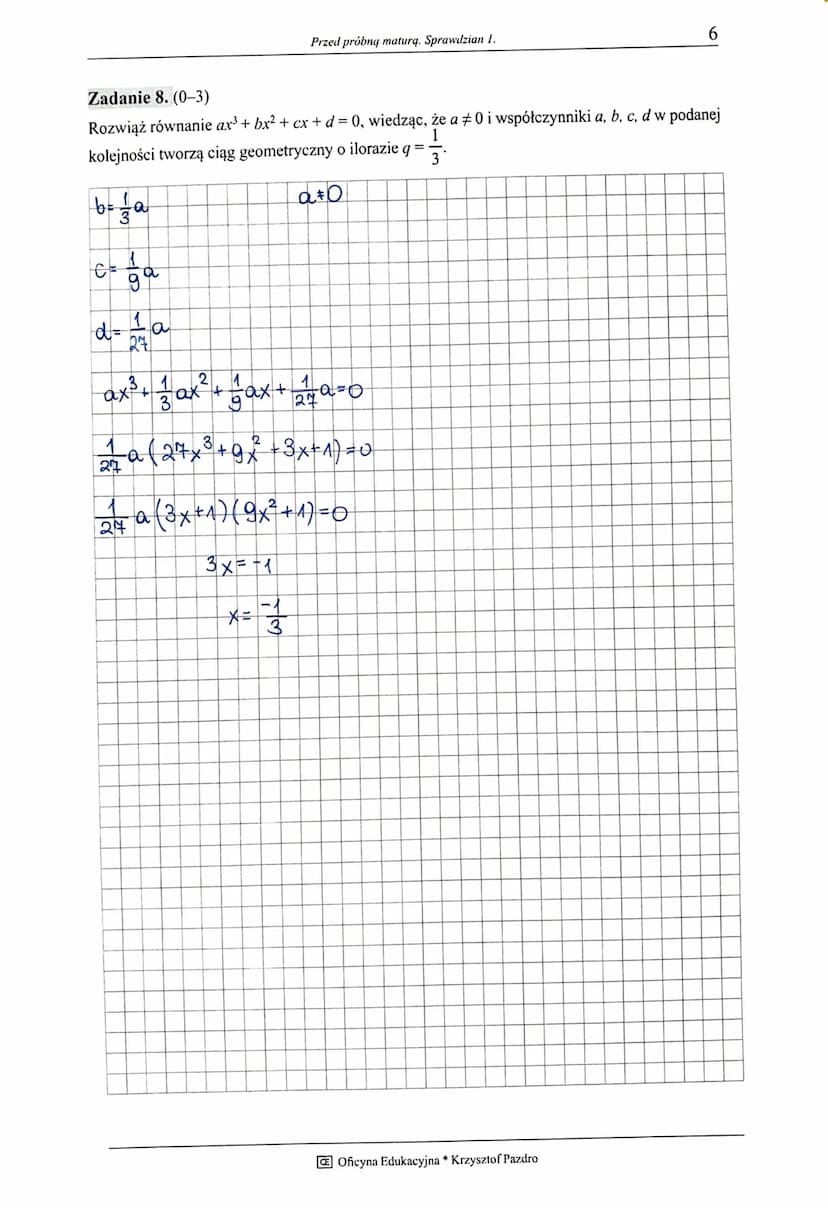 Przed próbną maturą. Sprawdzian 1.
6
Zadanie 8. (0–3)
Rozwiąż równanie ax³ + bx² + cx + d = 0, wiedząc, że a ≠ 0 i współczynniki a, b, c, d w podanej
kolejności tworzą ciąg geometryczny o ilorazie q = 1/3.
b = 1/3 a
a ≠ 0
c = 1/9 a
d = 1/27 a
ax³ + 1/3 ax² + 1/9 ax + 1/27 a = 0
1/27 a (27x³ + 9x² + 3x + 1) = 0
1/27 a (3x+1)(9x²+1) = 0
3x = -1
x = -1/3
Œ Oficyna Edukacyjna * Krzysztof Pazdro